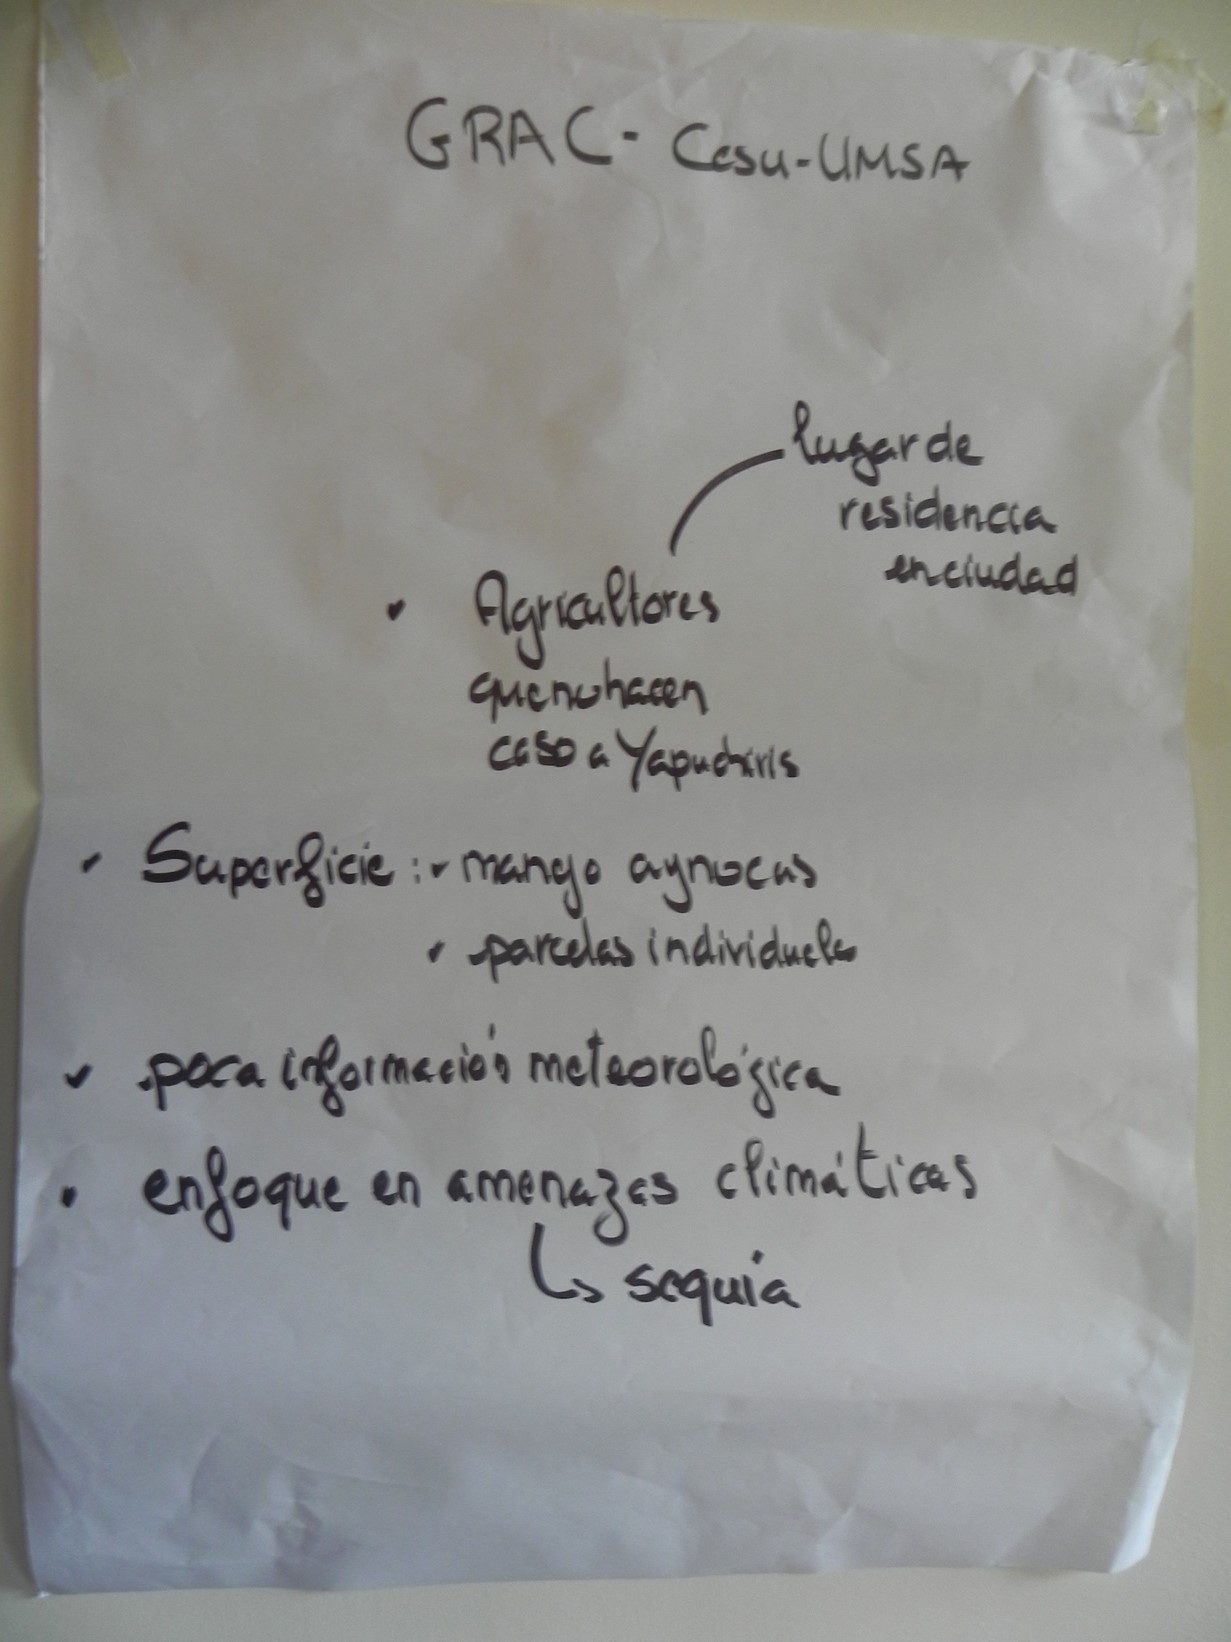 GRAC - Cesu-UMSA
lugar de
residencia
en ciudad
• Agricultores
que no hacen
caso a Yapuchiris
• Superficie : • manejo aynocas
• parcelas individuales
• poca información meteorológica
• enfoque en amenazas climáticas
↳ sequia